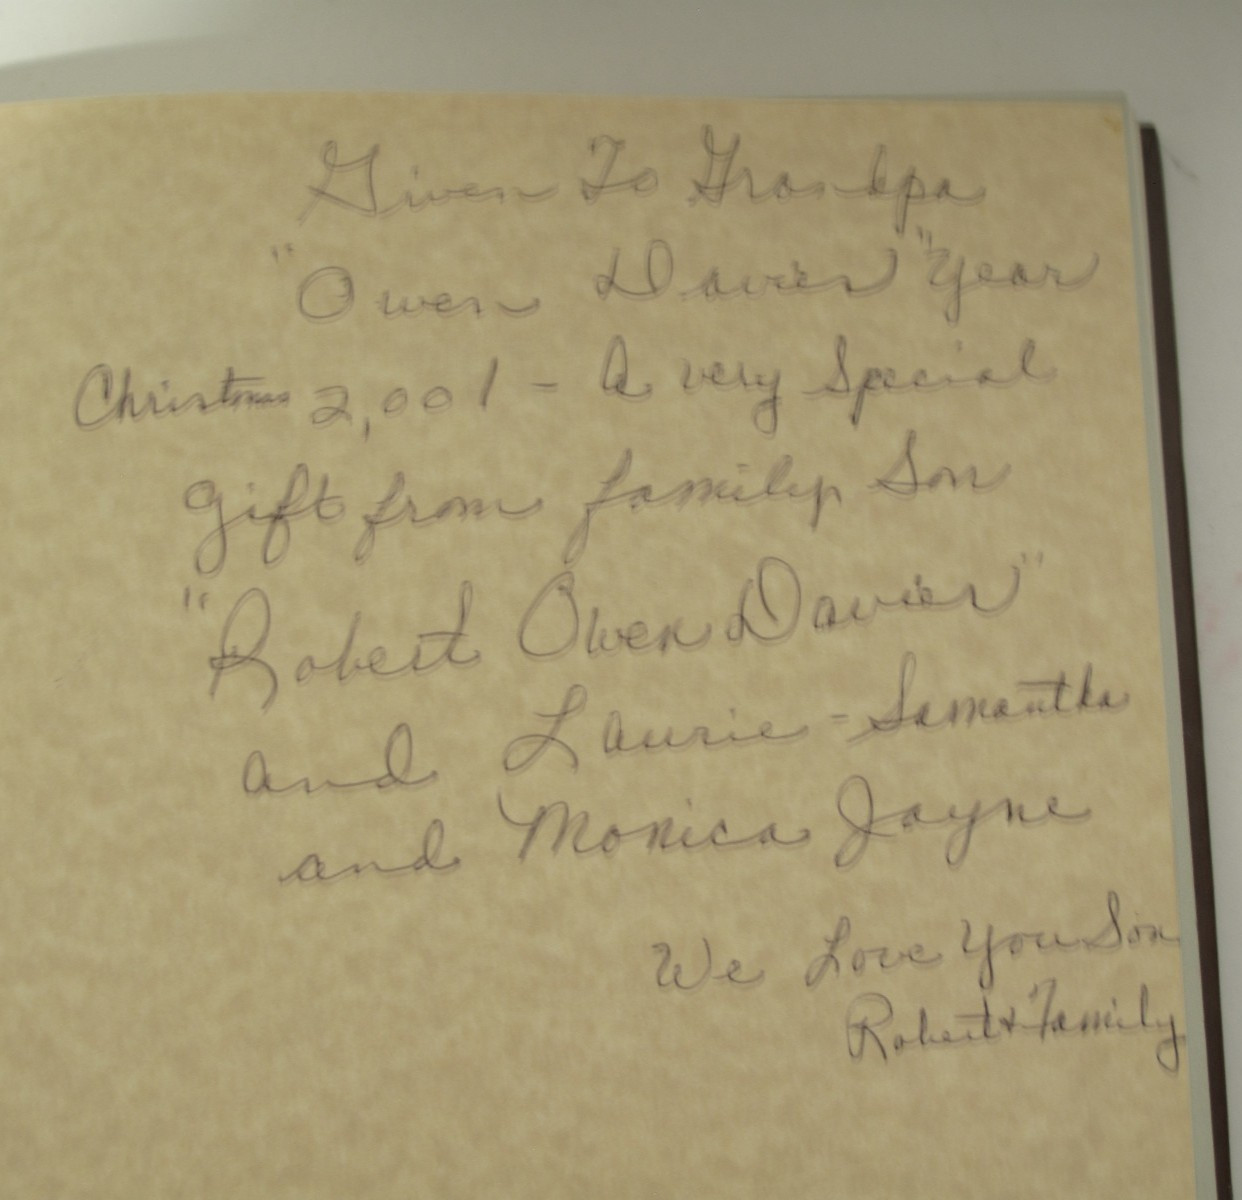 Given To Grandpa
"Owen Davies" Year
Christmas 2,001 - A very Special
gift from family Son
"Robert Owen Davies"
and Laurie - Samantha
and Monica Jayne
We Love You Son
Robert & Family